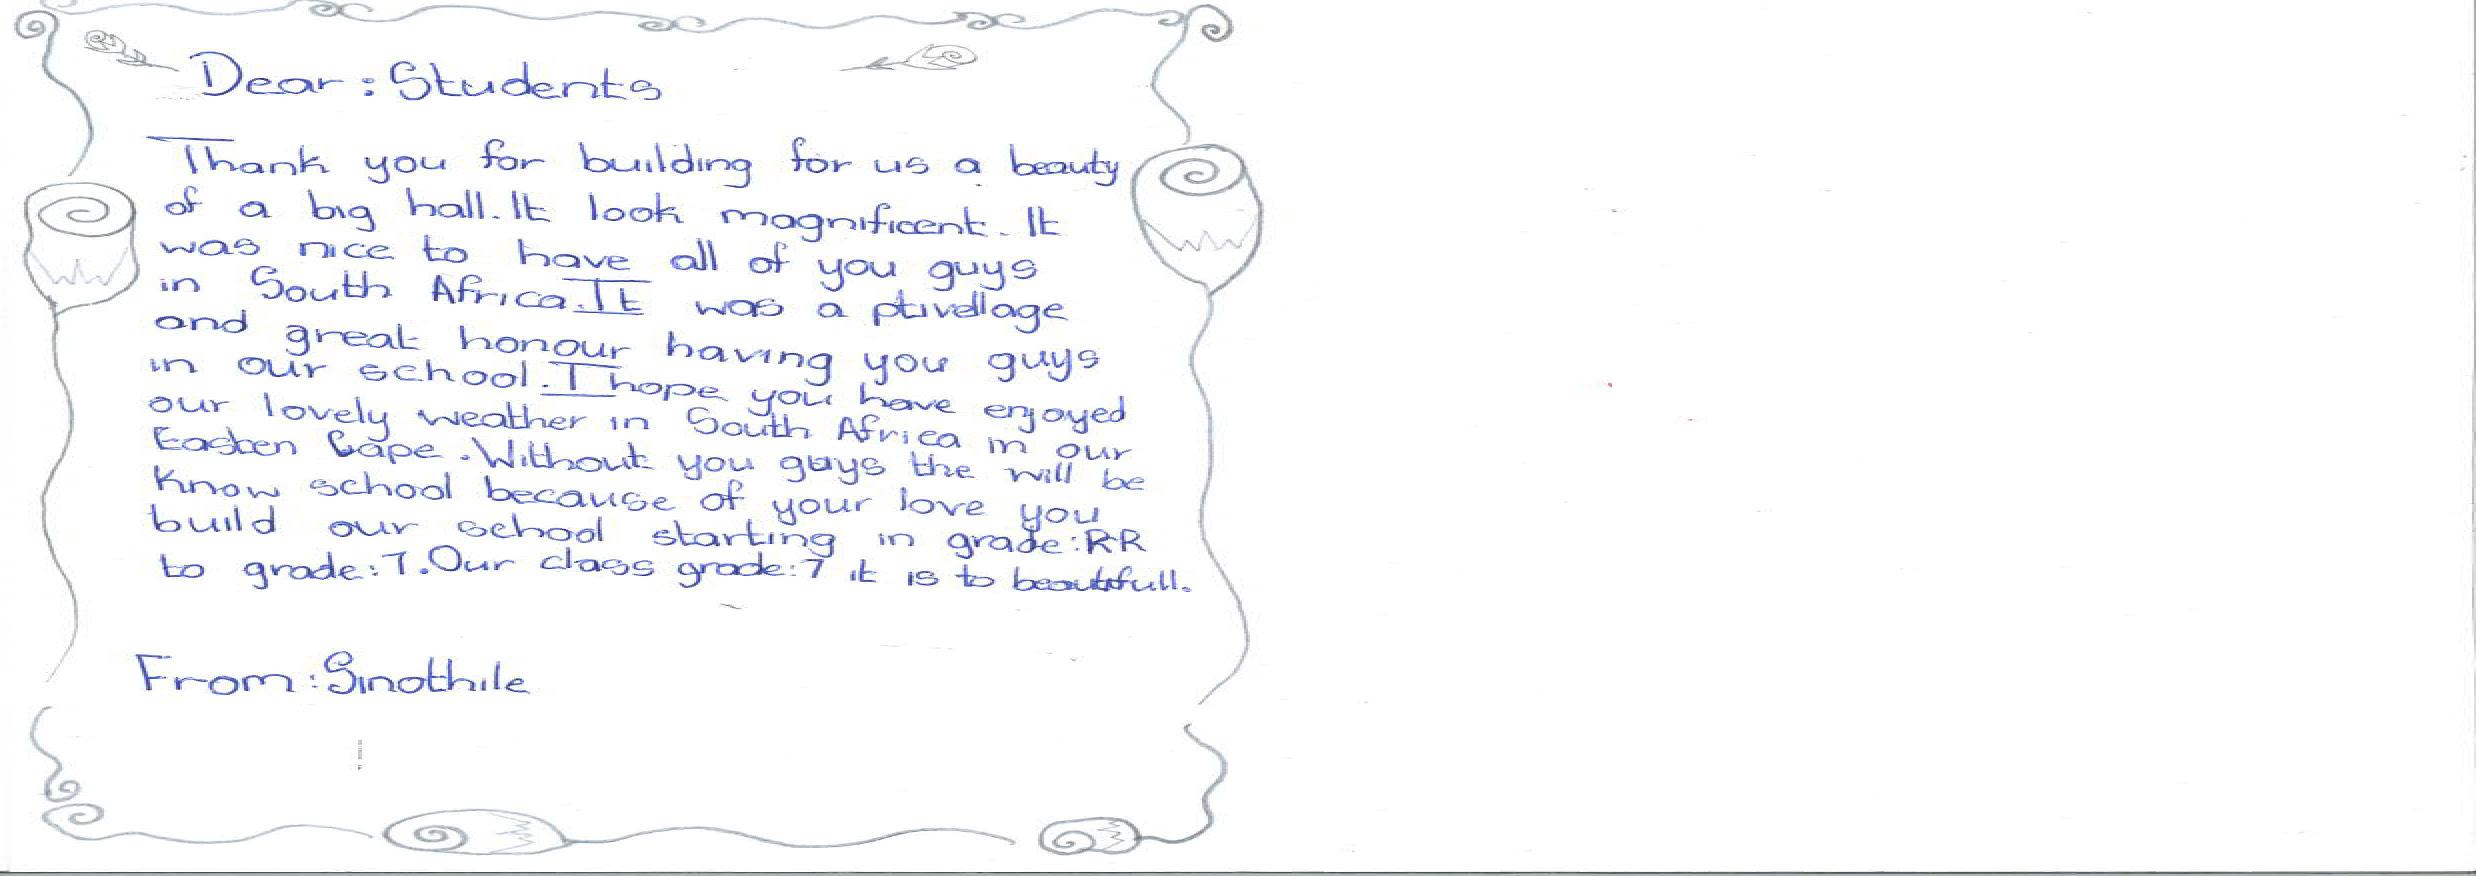 Dear : Students
Thank you for building for us a beauty
of a big hall. It look magnificent. It
was nice to have all of you guys
in South Africa. It was a ptivellage
and great honour having you guys
in our school. I hope you have enjoyed
our lovely weather in South Africa in our
Easten Cape. Without you guys the will be
know school because of your love you
build our school starting in grade:RR
to grade:7. Our class grade:7 it is to beautifull.
From : Sinothile